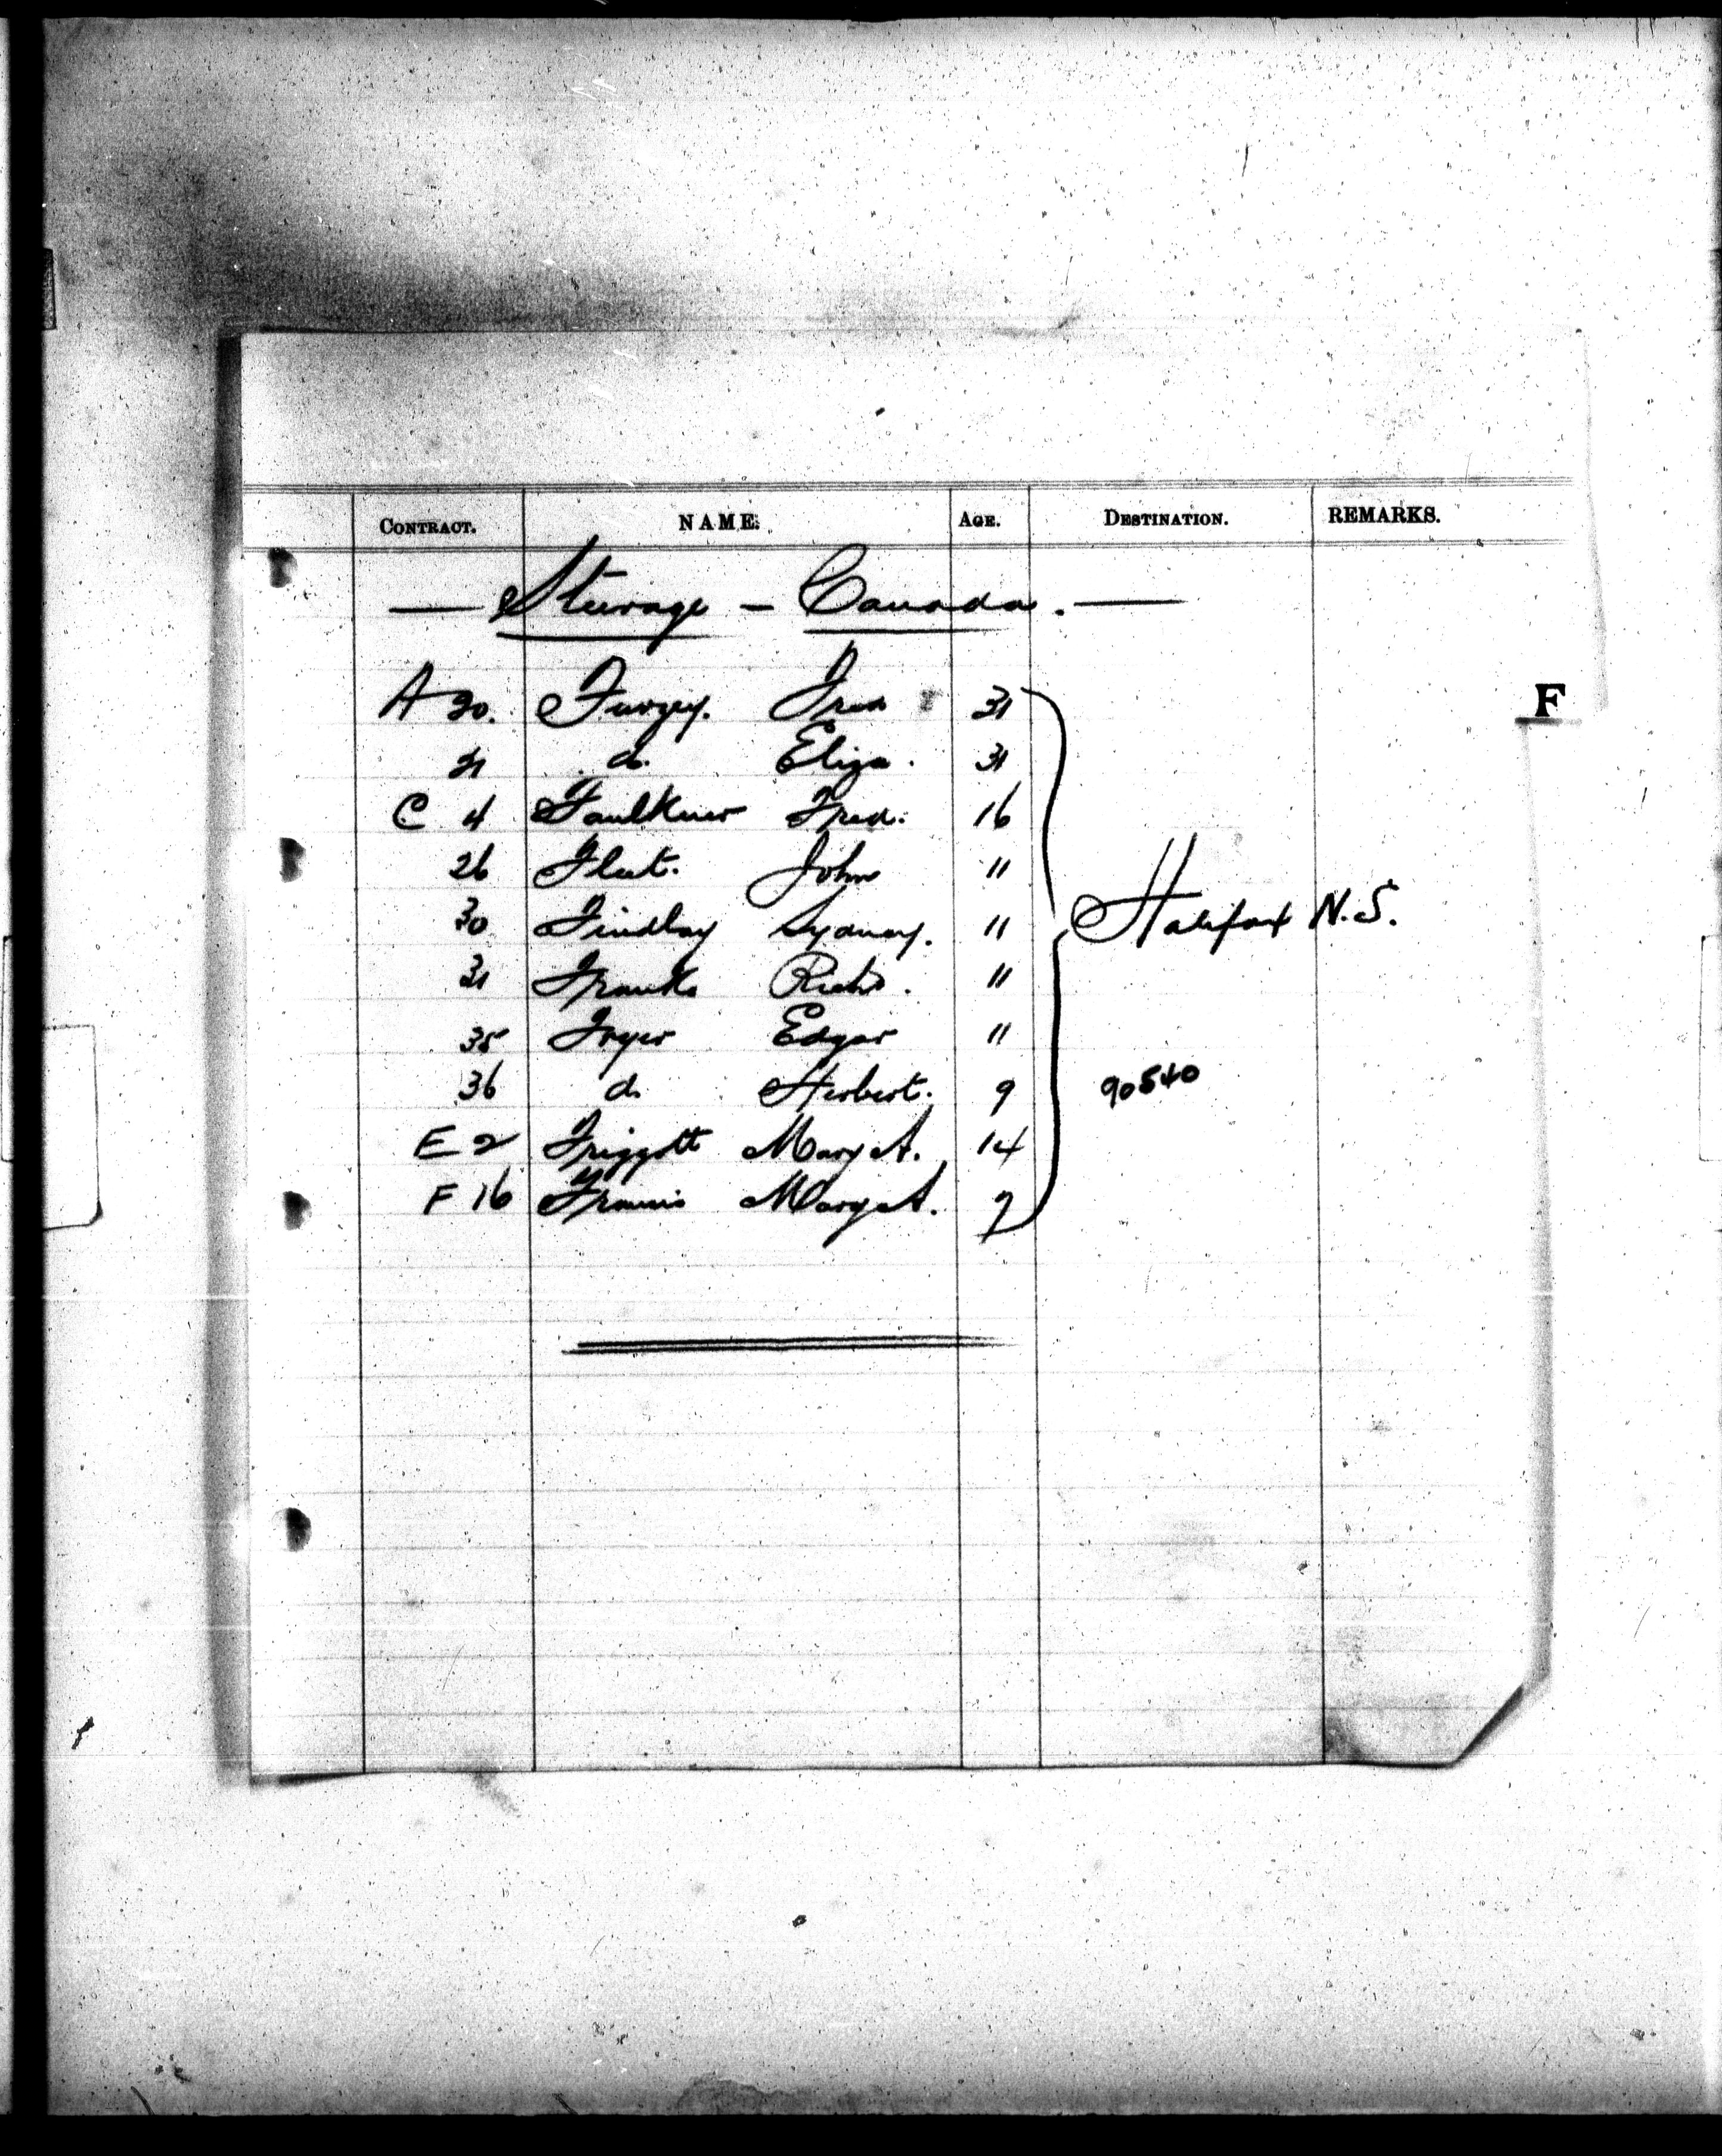 CONTRACT. NAME. AGE. DESTINATION. REMARKS.
— Steerage – Canada. —
A 20. Furzey. Fred 31
21 do. Eliza. 31
C 4 Faulkner Fred. 16
26 Fleet. John 11
30 Findlay Sydney. 11
Halifax N.S.
31 Franks Richd. 11
35 Fryer Edgar 11
36 do Herbert. 9
90540
E 2 Friggott Mary A. 14
F 16 Francis Mary A. 7
F